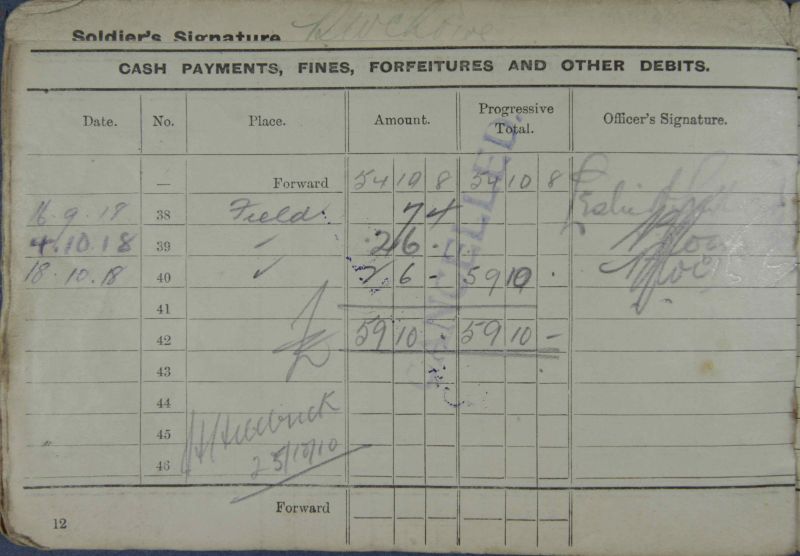 Soldier's Signature
CASH PAYMENTS, FINES, FORFEITURES AND OTHER DEBITS.
Date. No. Place. Amount. Progressive Total. Officer's Signature.
— Forward 54 10 8 54 10 8
16.9.18 38 Field 7 4
4.10.18 39 ✓ 2 6 -
18.10.18 40 ✓ 2 6 - 59 10 .
41
42 59 10 . 59 10 -
43
44
45
46
Forward
12
CANCELLED.